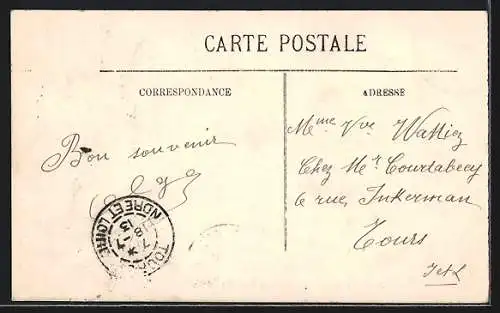 CARTE POSTALE
CORRESPONDANCE
ADRESSE
Bon souvenir
Mme Vve Wattiez
Chez Mr Courtabecy
6 rue Inkerman
Tours
I et L
TOU
INDRE ET LOIRE
7 - 4
13